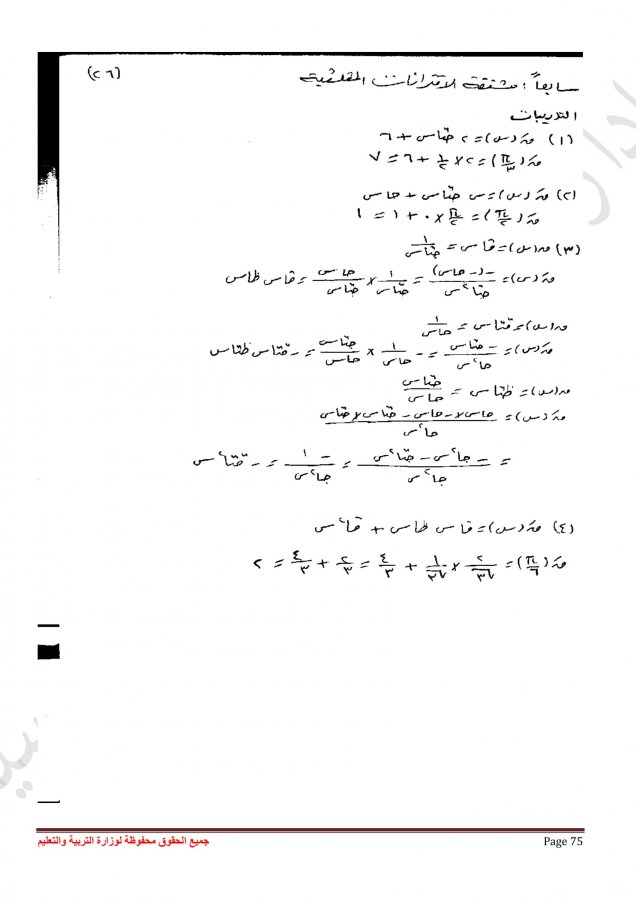 (٢٦)
سابعاً : مشتقة الاقترانات المثلثية
التدريبات
(١) قَ(س) = ٢ جتاس + ٦
قَ(π/٣) = ٢ × ١/٢ + ٦ = ٧
(٢) قَ(س) = س جتاس + جاس
قَ(π/٢) = π/٢ × ٠ + ١ = ١
(٣) ق(س) = قاس = ١/جتاس
قَ(س) = -(-جاس)/جتا²س = ١/جتاس × جاس/جتاس = قاس ظاس
ق(س) = قتاس = ١/جاس
قَ(س) = -جتاس/جا²س = -١/جاس × جتاس/جاس = -قتاس ظتاس
ق(س) = ظتاس = جتاس/جاس
قَ(س) = جاس × -جاس - جتاس × جتاس/جا²س
= -جا²س - جتا²س/جا²س = -١/جا²س = -قتا²س
(٤) قَ(س) = قاس ظاس + قا²س
قَ(π/٦) = ٢/√٣ × ١/√٣ + ٤/٣ = ٢/٣ + ٤/٣ = ٢
جميع الحقوق محفوظة لوزارة التربية والتعليم
Page 75